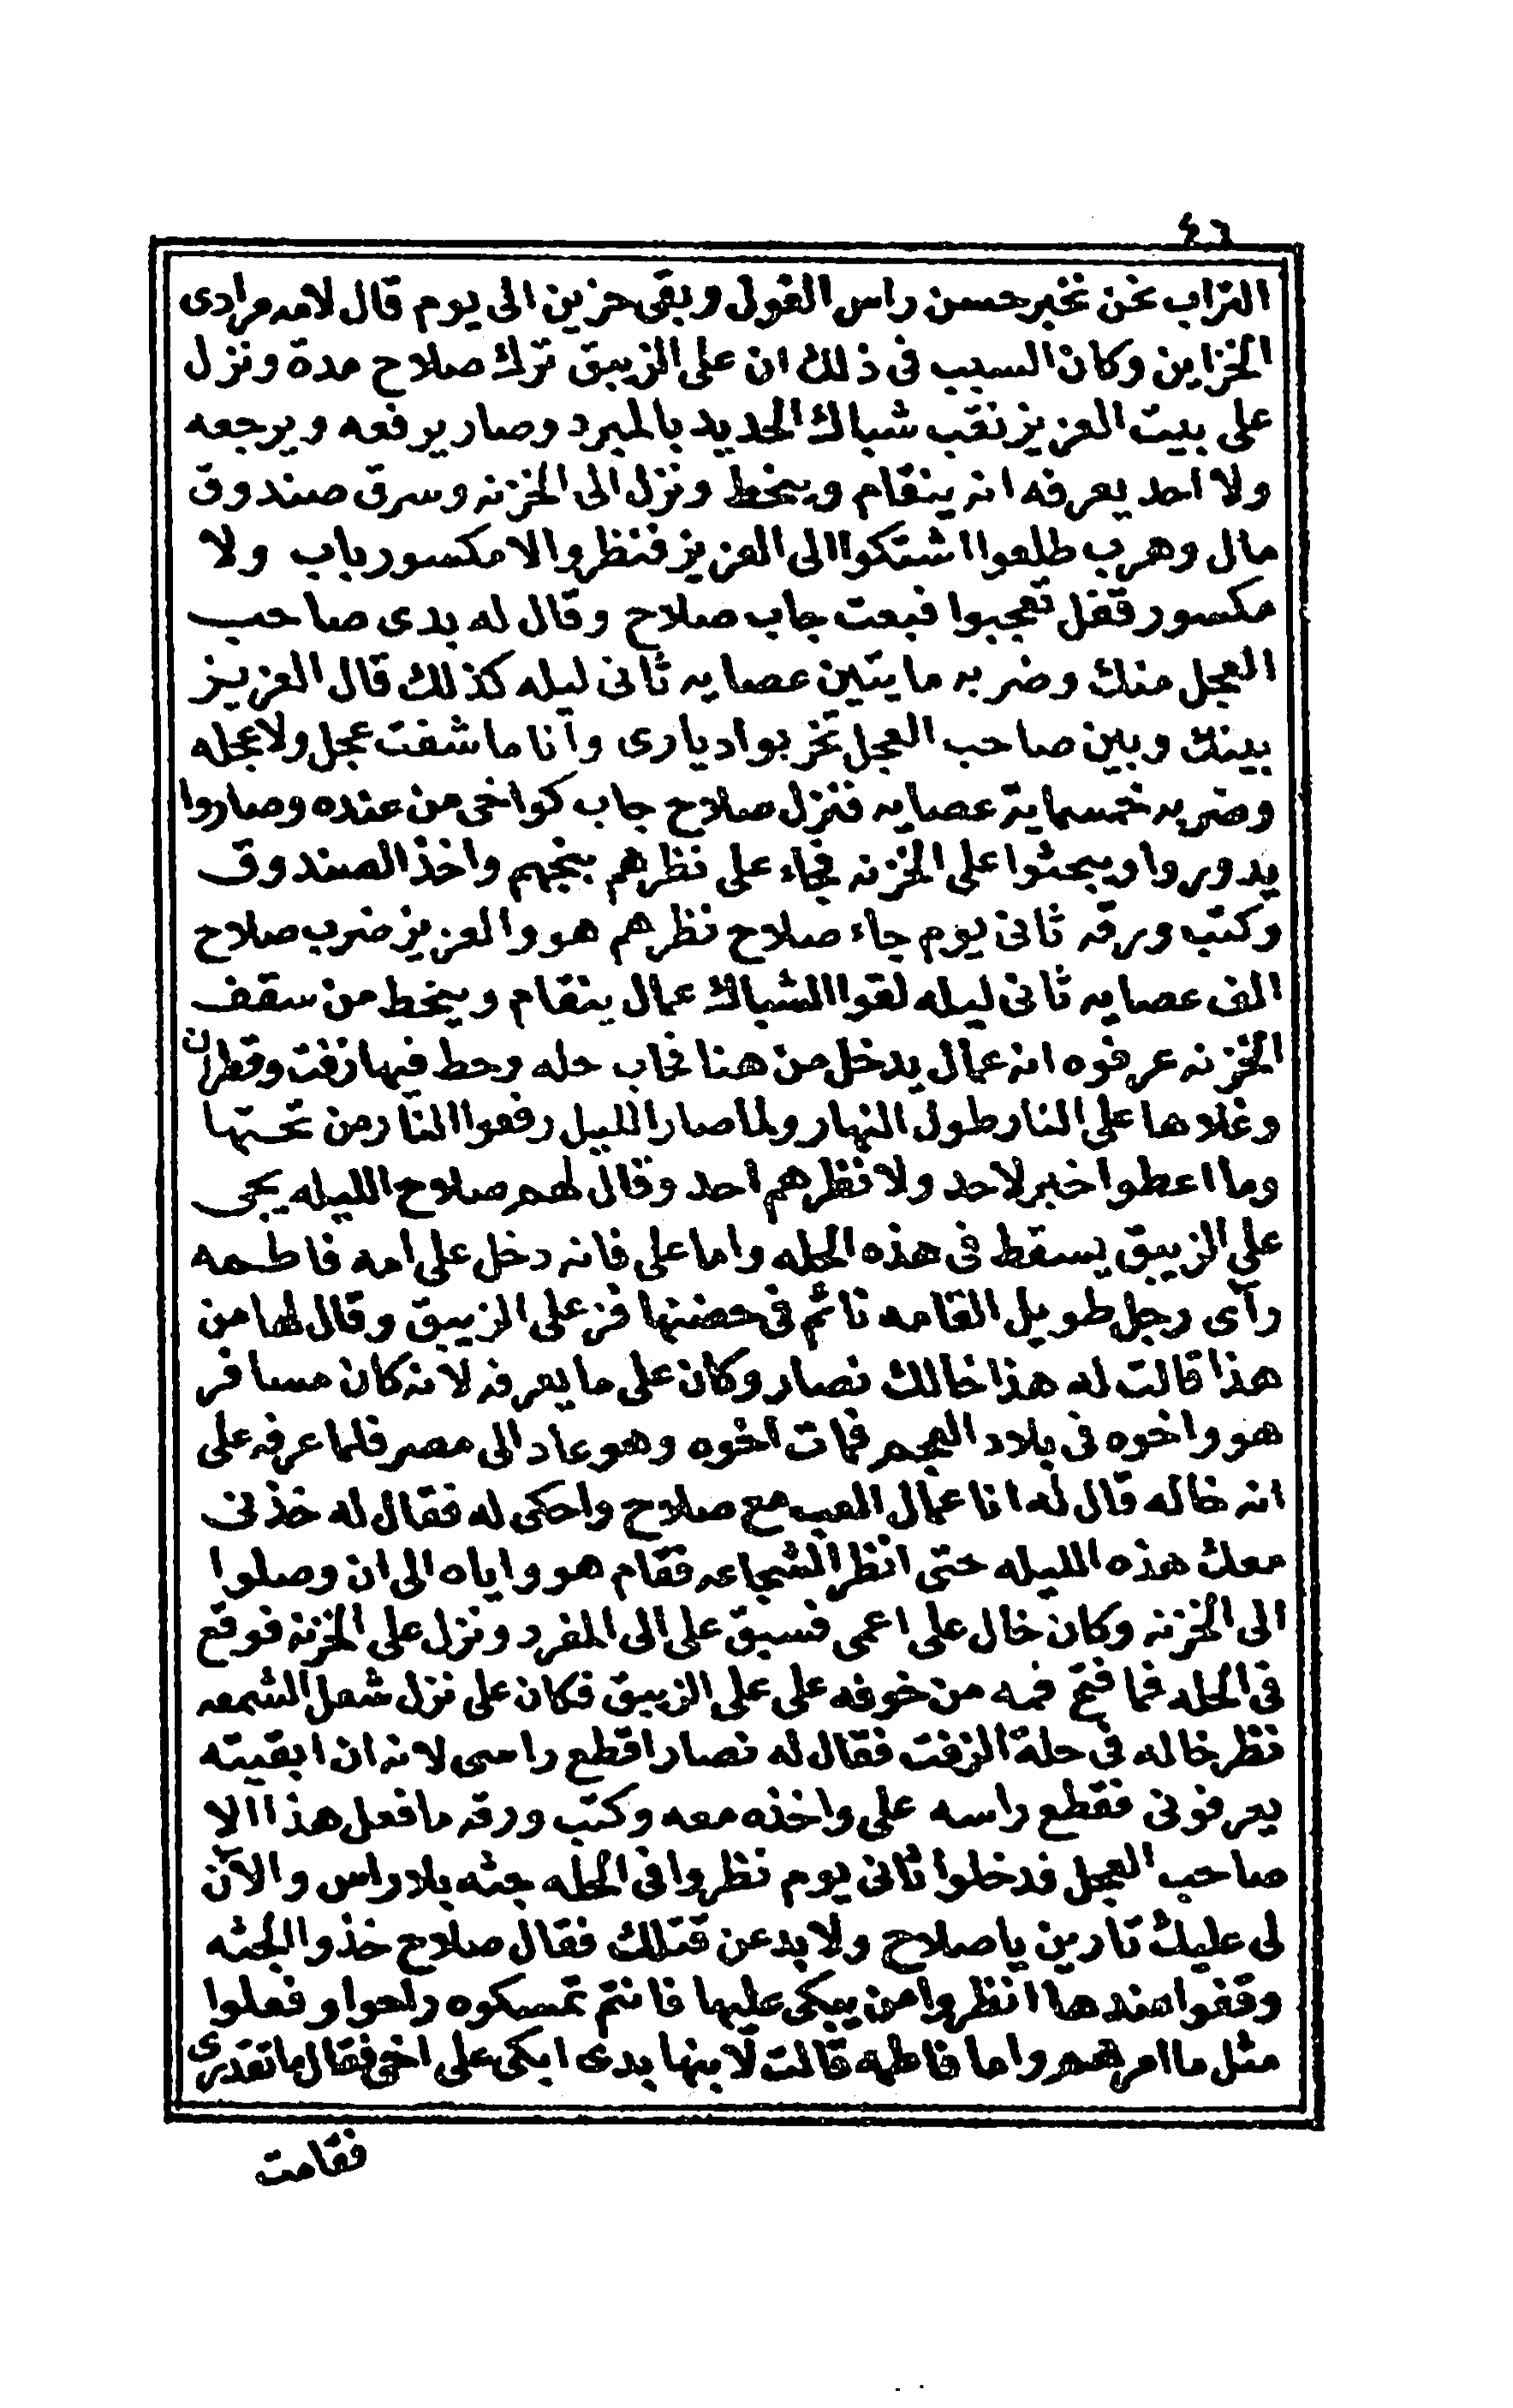 ٤٦
التراب نحن نخبر حسن راس الغول وبقى حزين الى يوم قال لامه مرادى
الخزاين وكان السبب فى ذلك ان على الزيبق ترك صلاح مدة ونزل
على بيت العزيز نقب شباك الحديد بالمبرد وصار يرفعه ويرجعه
ولا احد يعرفه انه ينقام وينحط ونزل الى الخزنه وسرق صندوق
مال وهرب طلعوا اشتكوا الى العزيز فنظروا لا مكسور باب ولا
مكسور قفل تعجبوا فبعت جاب صلاح وقال له بدى صاحب
العجل منك وضربه مايتين عصايه ثانى ليله كذلك قال العزيز
بينك وبين صاحب العجل تخربوا ديارى وآنا ما شفت عجل ولا عجله
وضربه خمسماية عصايه فنزل صلاح جاب كواخى من عنده وصاروا
يدوروا ويبحثوا على الخزنه فجاء على نظرهم بنجهم واخذ الصندوق
وكتب ورقه ثانى يوم جاء صلاح نظرهم هو والعزيز ضرب صلاح
الف عصايه ثانى ليله لقوا الشباك عمال ينقام وينحط من سقف
الخزنه عرفوه انه عمال يدخل من هنا نجاب حله وحط فيها زفت وقطران
وغلاها على النار طول النهار ولما صار الليل رفعوا النار من تحتها
وما اعطوا خبر لاحد ولا نظرهم احد وقال لهم صلاح الليله يجى
على الزيبق يسقط فى هذه الحله واما على فانه دخل على امه فاطمه
رآى رجل طويل القامه نائم فى حضنها فز على الزيبق وقال لها من
هذا قالت له هذا خالك نصار وكان على ما يعرفه لانه كان مسافر
هو واخوه فى بلاد العجم فمات اخوه وهو عاد الى مصر فلما عرفه على
انه خاله قال له انا عمال العب مع صلاح واحكى له فقال له خذنى
معك هذه الليله حتى انظر الشجاعه فقام هو واياه الى ان وصلوا
الى الخزنه وكان خال على اعمى فسبق على الى المفرد ونزل على الخزنه فوقع
فى الحله فما فتح فمه من خوفه على على الزيبق فكان على نزل شعل الشمعه
نظر خاله فى حلة الزفت فقال له نصار اقطع راسى لانه ان ابقيته
يعرفونى فقطع راسه على واخذه معه وكتب ورقه ما فعل هذا الا
صاحب العجل فدخلوا ثانى يوم نظروا فى الحله جثه بلا راس والآن
لى عليك تارين يا صلاح ولا بد عن قتلك فقال صلاح خذوا الجثه
وقفوا عندها انظروا من يبكى عليها فانتم تمسكوه راحوا وفعلوا
مثل ما امرهم واما فاطمه قالت لابنها بدى ابكى على اخى فقال ما تقدرى
فقامت